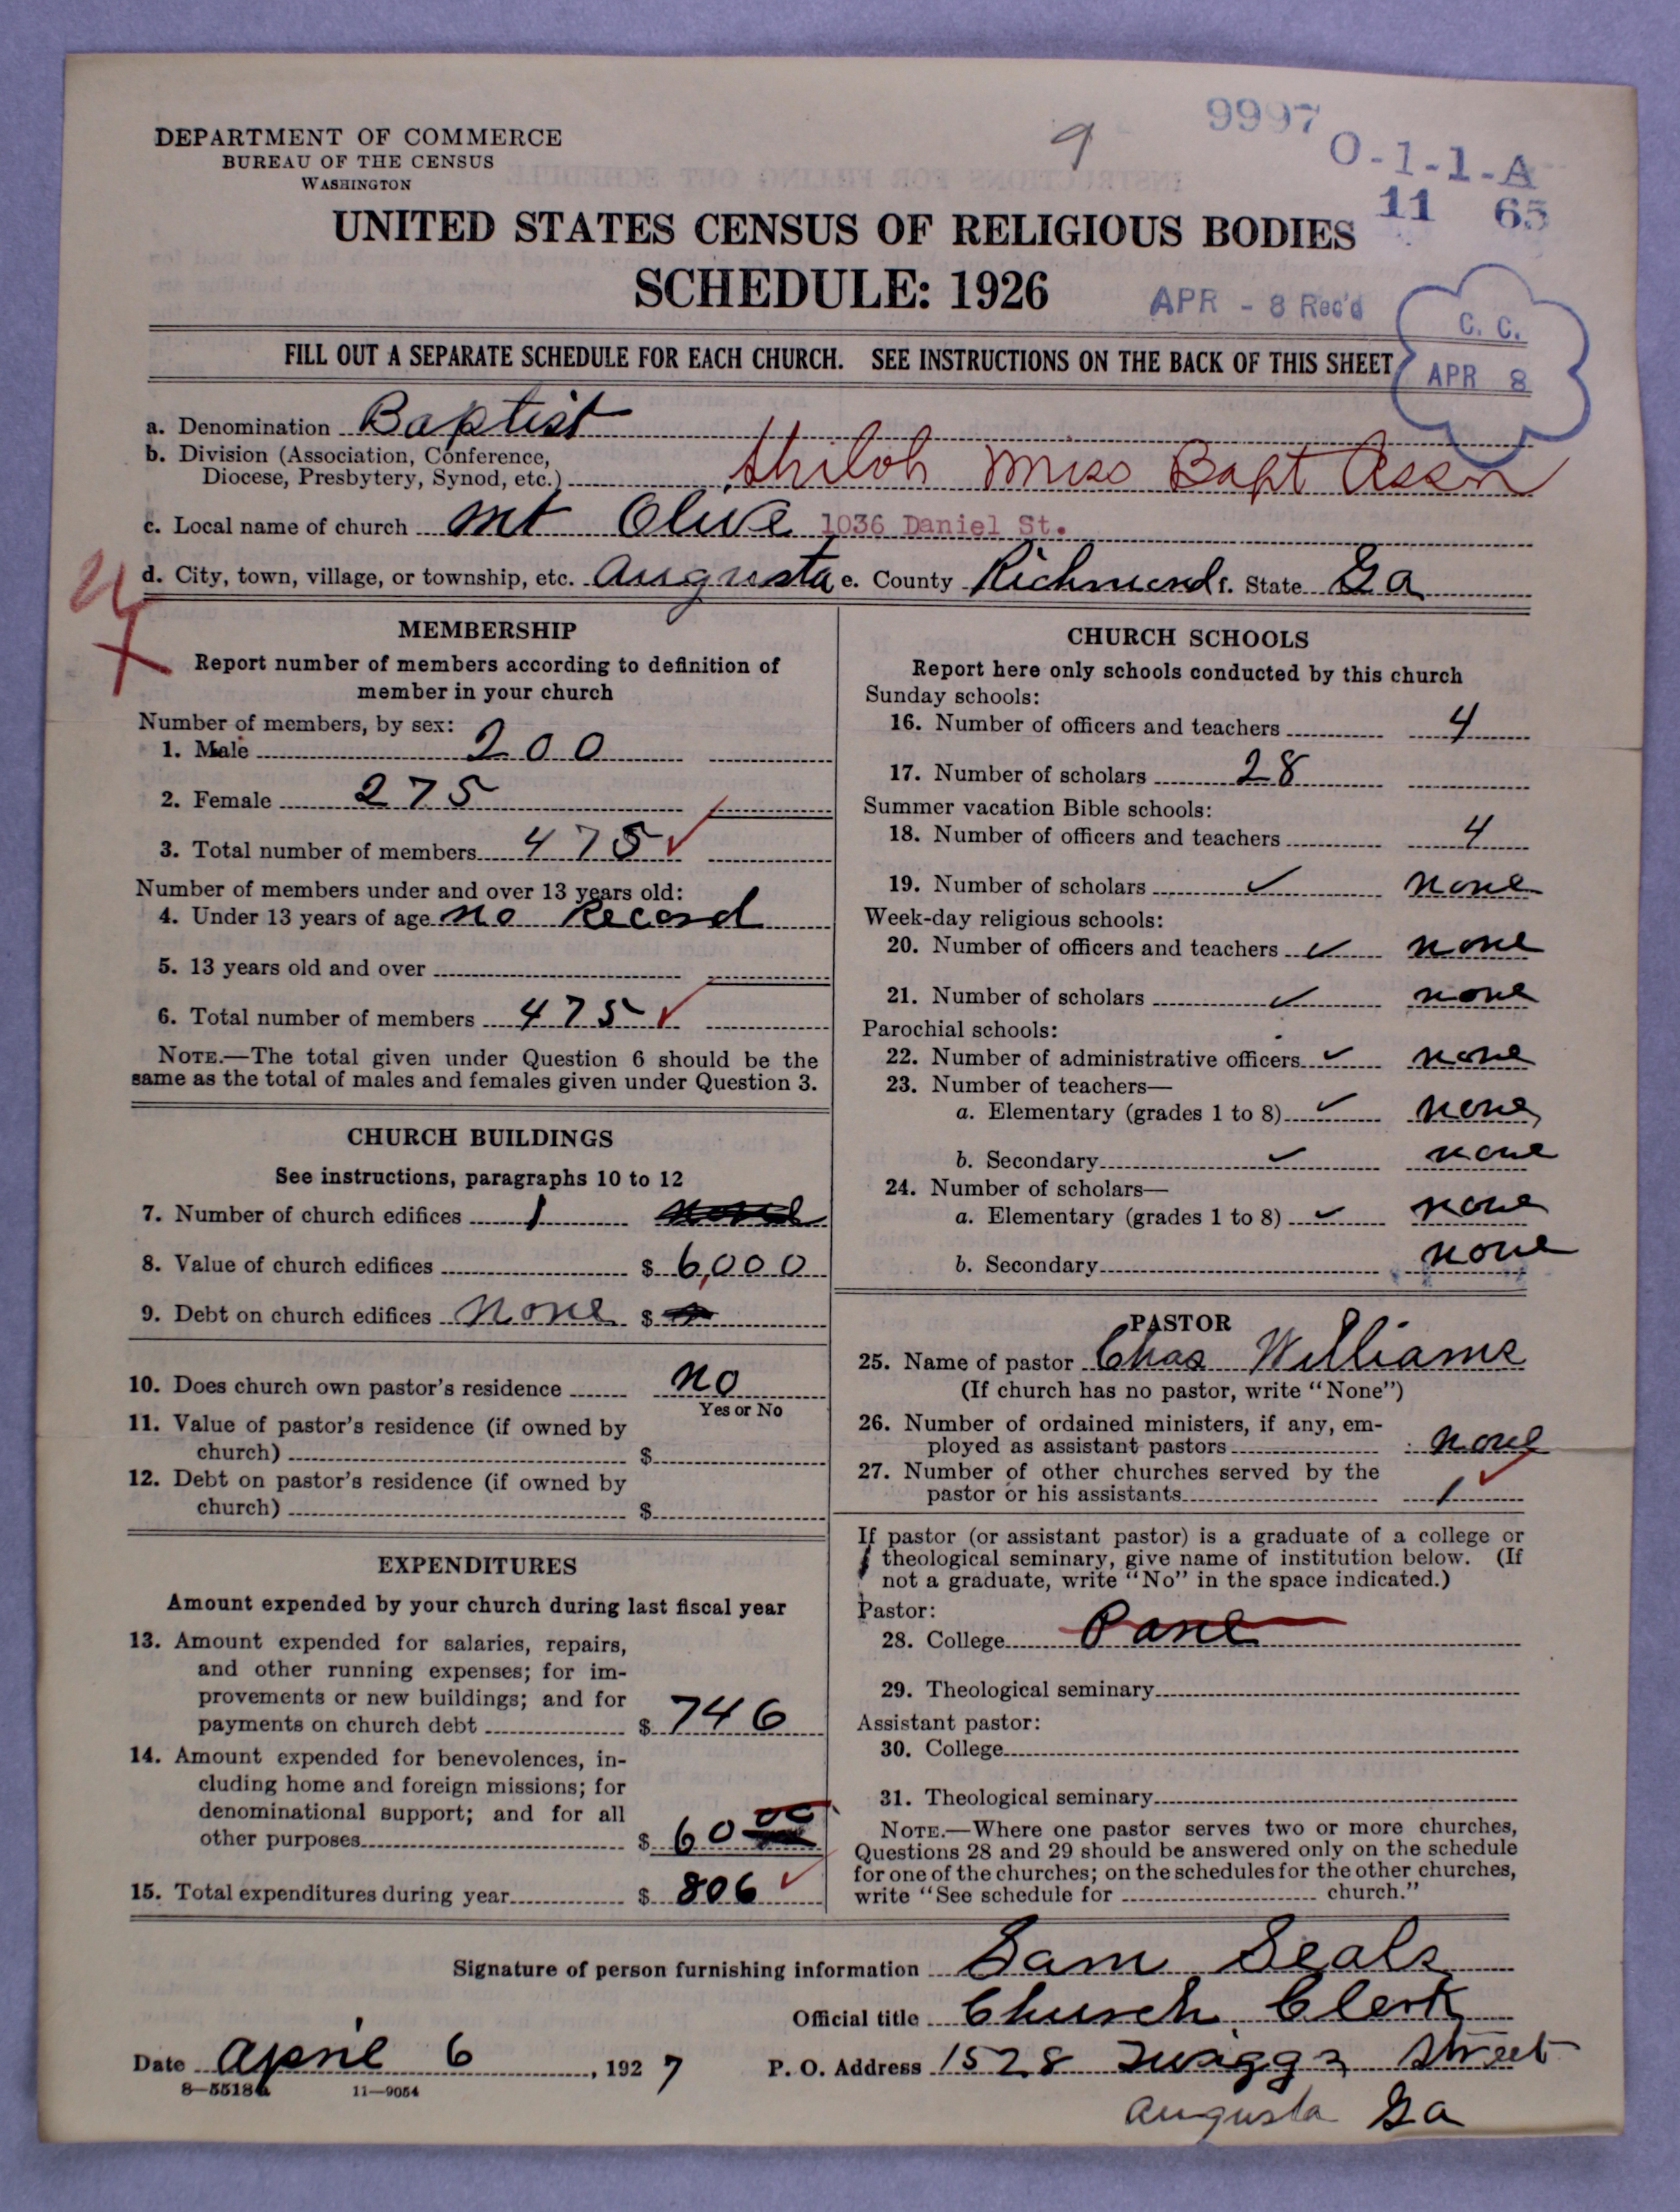 9997
9
O-1-1-A
11 65
DEPARTMENT OF COMMERCE
BUREAU OF THE CENSUS
WASHINGTON
UNITED STATES CENSUS OF RELIGIOUS BODIES
SCHEDULE: 1926
APR - 8 Rec'd
C. C.
APR 8
FILL OUT A SEPARATE SCHEDULE FOR EACH CHURCH. SEE INSTRUCTIONS ON THE BACK OF THIS SHEET
a. Denomination Baptist
b. Division (Association, Conference,
Diocese, Presbytery, Synod, etc.) Shiloh Miss Bapt Assn
c. Local name of church Mt Olive 1036 Daniel St.
d. City, town, village, or township, etc. Augusta e. County Richmond f. State Ga
MEMBERSHIP
Report number of members according to definition of
member in your church
Number of members, by sex:
1. Male 200
2. Female 275
3. Total number of members 475 ✓
Number of members under and over 13 years old:
4. Under 13 years of age no Record
5. 13 years old and over
6. Total number of members 475 ✓
NOTE.—The total given under Question 6 should be the
same as the total of males and females given under Question 3.
CHURCH BUILDINGS
See instructions, paragraphs 10 to 12
7. Number of church edifices 1
8. Value of church edifices $ 6,000
9. Debt on church edifices None $
10. Does church own pastor's residence no
Yes or No
11. Value of pastor's residence (if owned by
church) $
12. Debt on pastor's residence (if owned by
church) $
EXPENDITURES
Amount expended by your church during last fiscal year
13. Amount expended for salaries, repairs,
and other running expenses; for im-
provements or new buildings; and for
payments on church debt $ 746
14. Amount expended for benevolences, in-
cluding home and foreign missions; for
denominational support; and for all
other purposes $ 60 00
15. Total expenditures during year $ 806 ✓
CHURCH SCHOOLS
Report here only schools conducted by this church
Sunday schools:
16. Number of officers and teachers 4
17. Number of scholars 28
Summer vacation Bible schools:
18. Number of officers and teachers 4
19. Number of scholars ✓ none
Week-day religious schools:
20. Number of officers and teachers ✓ none
21. Number of scholars ✓ none
Parochial schools:
22. Number of administrative officers ✓ none
23. Number of teachers—
a. Elementary (grades 1 to 8) ✓ none
b. Secondary ✓ none
24. Number of scholars—
a. Elementary (grades 1 to 8) ✓ none
b. Secondary none
PASTOR
25. Name of pastor Chas Williams
(If church has no pastor, write "None")
26. Number of ordained ministers, if any, em-
ployed as assistant pastors none
27. Number of other churches served by the
pastor or his assistants 1 ✓
If pastor (or assistant pastor) is a graduate of a college or
theological seminary, give name of institution below. (If
not a graduate, write "No" in the space indicated.)
Pastor:
28. College
29. Theological seminary
Assistant pastor:
30. College
31. Theological seminary
NOTE.—Where one pastor serves two or more churches,
Questions 28 and 29 should be answered only on the schedule
for one of the churches; on the schedules for the other churches,
write "See schedule for church."
Signature of person furnishing information Sam Seals
Official title Church Clerk
Date April 6, 1927 P. O. Address 1528 Twiggs Street
Augusta Ga
8—5518a 11—9054